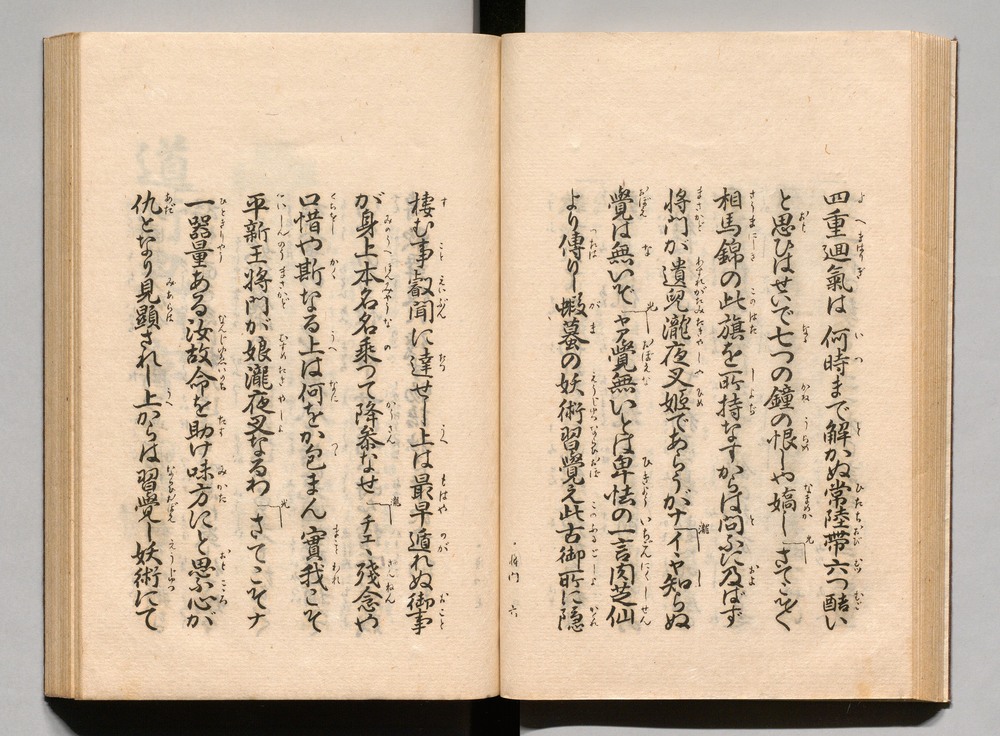 四重廻氣は 何時まで解かぬ常陸帶六つ酷い
と思ひはせいで七つの鐘の恨しや嬌し 光 さてこそ〱
相馬錦の此旗を所持なすからは問ふに及ばず
將門が遺兒瀧夜叉姫であらうがナ 瀧 イヤ知らぬ
覺は無いぞ 光 ヤア覺無いとは卑怯の一言肉芝仙
より傳りし蝦蟇の妖術習覺え此古御所に隱
將門 六
棲む事叡聞に達せし上は最早遁れぬ御事
が身上本名名乘つて降參なせ 瀧 チエヽ殘念や
口惜や斯なる上は何をか包まん 實我こそ
平新王將門が娘瀧夜叉なるわ 光 さてこそナ
一器量ある汝故命を助け味方にと思ふ心が
仇となり見顯されし上からは習覺し妖術にて